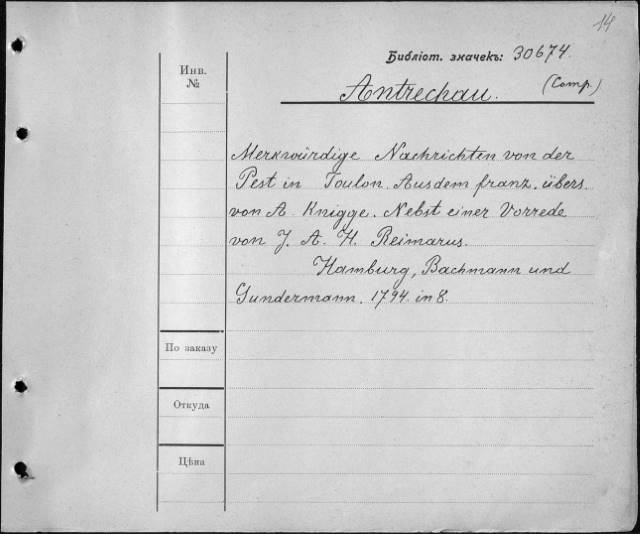 14
Библіот. значекъ: 30674.
Инв.
№
Antrechau. (Comp.)
Merkwürdige Nachrichten von der
Pest in Toulon. Aus dem franz. übers.
von A. Knigge. Nebst einer Vorrede
von J. A. H. Reimarus.
Hamburg, Bachmann und
Gundermann. 1794. in 8.
По заказу
Откуда
Цѣна